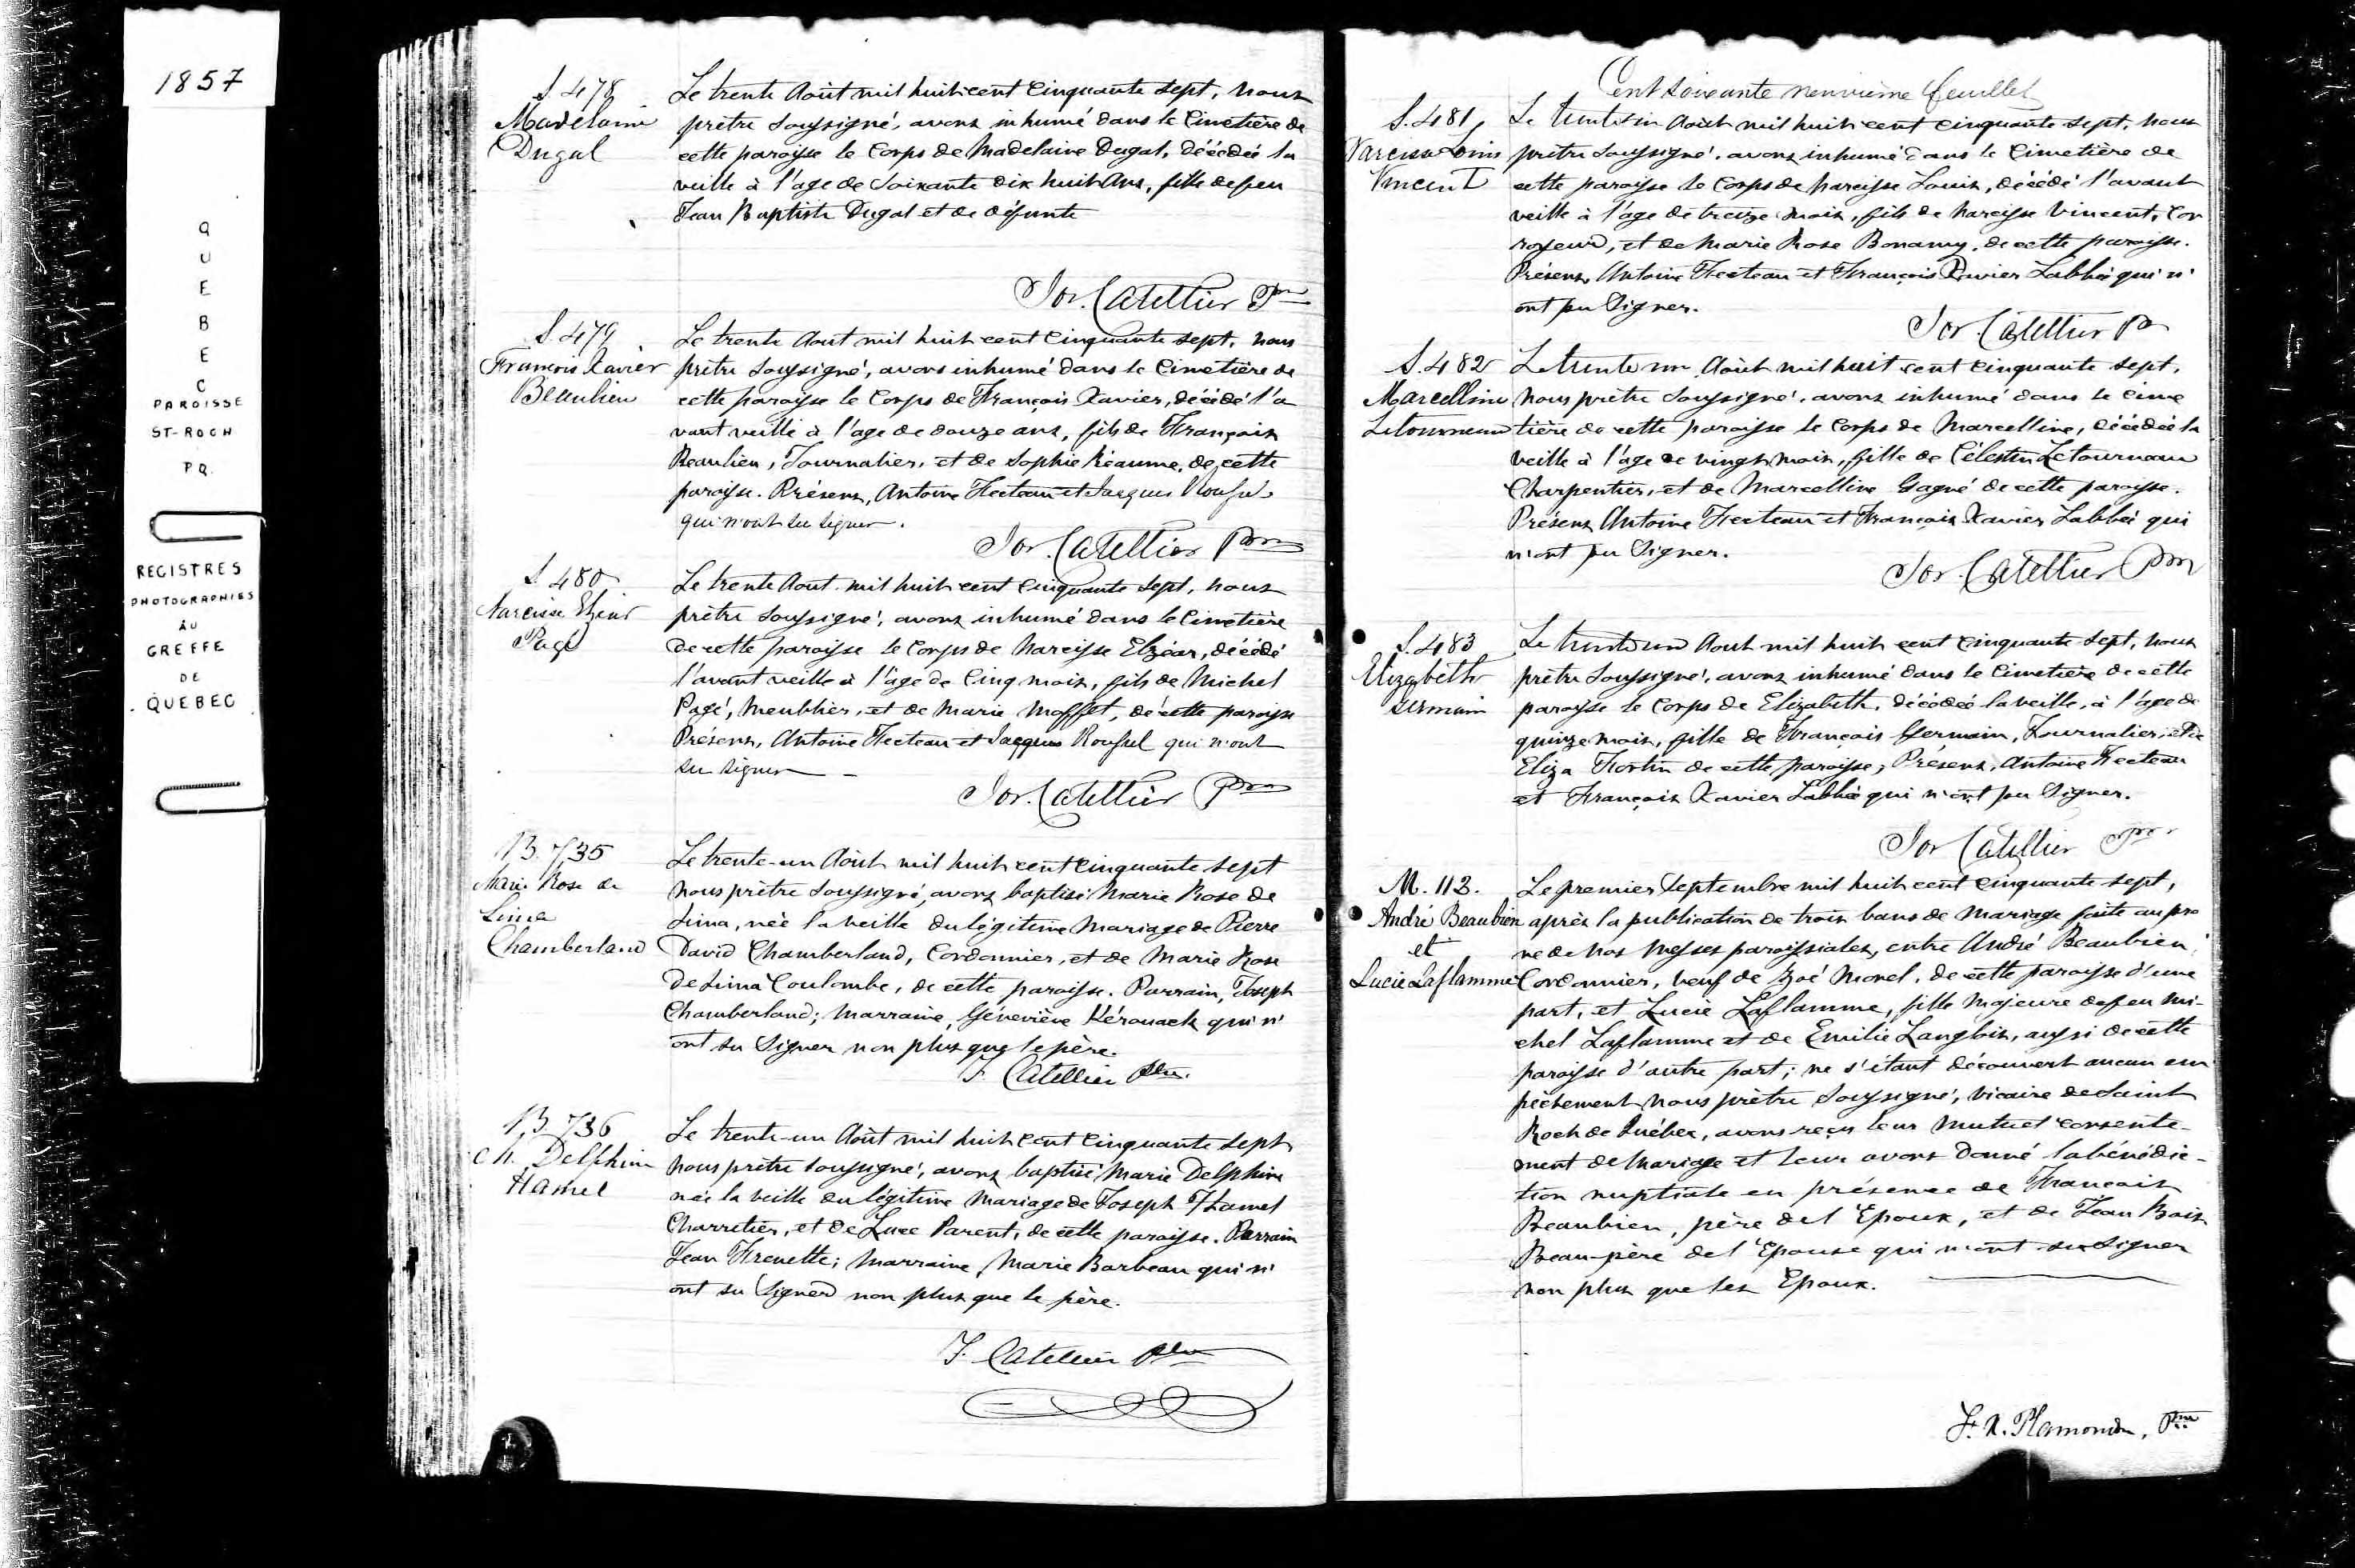 1857
QUEBEC
PAROISSE
ST-ROCH
P.Q.
REGISTRES
PHOTOGRAPHIES
AU
GREFFE
DE
QUEBEC
S. 478
Madelaine
Dugal
Le trente Août mil huit cent Cinquante Sept, nous
prêtre Soussigné, avons inhumé dans le Cimetière de
cette paroisse le Corps de Madelaine Dugal, décédée la
veille à l'age de Soixante dix huit Ans, fille de feu
Jean Baptiste Dugal et de défunte
Jos. Catellier Ptre
S. 479
François Xavier
Beaulieu
Le trente Aout mil huit cent Cinquante Sept, nous
prêtre Soussigné, avons inhumé dans le Cimetière de
cette paroisse le Corps de François Xavier, décédé l'a
vant veille à l'age de douze ans, fils de François
Beaulieu, Journalier, et de Sophie Réaume, de cette
paroisse. Présens, Antoine Fecteau et Jacques Roussel
qui n'ont su signer.
Jos. Catellier Ptre
S. 480
Narcisse Elzéar
Pagé
Le trente Aout mil huit cent Cinquante Sept, nous
prêtre Soussigné, avons inhumé dans le Cimetière
de cette paroisse le Corps de Narcisse Elzéar, décédé
l'avant veille à l'âge de Cinq mois, fils de Michel
Pagé, Meublier, et de Marie Moffet, de cette paroisse
Présens, Antoine Fecteau et Jacques Roussel qui n'ont
su signer
Jos. Catellier Ptre
B. 735
Marie Rose de
Lima
Chamberland
Le trente-un Août mil huit cent Cinquante Sept
nous prêtre Soussigné, avons baptisé Marie Rose de
Lima, née la veille du légitime Mariage de Pierre
David Chamberland, Cordonnier, et de Marie Rose
de Lima Coulombe, de cette paroisse. Parrain, Joseph
Chamberland; Marraine, Géneviève Kérouack qui n'
ont su Signer non plus que le père.
J. Catellier Ptre.
B. 736
M. Delphine
Hamel
Le trente-un Août mil huit Cent Cinquante Sept
nous prêtre Soussigné, avons baptisé Marie Delphine
née la veille du légitime Mariage de Joseph Hamel
Charretier, et de Luce Parent, de cette paroisse. Parrain
Jean Frenette; Marraine, Marie Barbeau qui n'
ont su Signer non plus que le père.
J. Catellier Ptre
Cent soixante neuvième feuillet
S. 481
Narcisse Louis
Vincent
Le trente un Août mil huit cent Cinquante Sept, nous
prêtre Soussigné, avons inhumé dans le Cimetière de
cette paroisse le Corps de Narcisse Louis, décédé l'avant
veille à l'âge de treize mois, fils de Narcisse Vincent, Cor
royeur, et de Marie Rose Bonamy, de cette paroisse.
Présens, Antoine Fecteau et François Xavier Labbé qui n'
ont pu Signer.
Jos. Catellier Ptre
S. 482
Marcelline
Letourneau
Le trente un Août mil huit cent Cinquante Sept,
Nous prêtre Soussigné, avons inhumé dans le Cime
tière de cette paroisse le Corps de Marcelline, décédée la
veille à l'âge de vingt mois, fille de Célestin Letourneau
Charpentier, et de Marcelline Gagné de cette paroisse.
Présens Antoine Fecteau et François Xavier Labbé qui
n'ont pu Signer.
Jos. Catellier Ptre
S. 483
Elizabeth
Germain
Le trente un Aout mil huit cent Cinquante Sept, nous
prêtre Soussigné, avons inhumé dans le Cimetière de cette
paroisse le Corps de Elizabeth, décédée la veille, à l'âge de
quinze mois, fille de François Germain, Journalier, et de
Eliza Fortin de cette paroisse; Présens, Antoine Fecteau
et François Xavier Labbé qui n'ont pu Signer.
Jos Catellier Ptre
M. 113.
André Beaubien
et
Lucie Laflamme
Le premier Septembre mil huit cent Cinquante Sept,
après la publication de trois bans de Mariage faite au prô
ne de nos Messes paroissiales, entre André Beaubien,
Cordonnier, veuf de Zoé Morel, de cette paroisse d'une
part, et Lucie Laflamme, fille Majeure de feu Mi-
chel Laflamme et de Emilie Langlois, aussi de cette
paroisse d'autre part; ne s'étant découvert aucun em
pêchement Nous prêtre Soussigné, vicaire de Saint
Roch de Québec, avons reçu leur Mutuel Consente-
ment de Mariage et leur avons donné la bénédic-
tion nuptiale en présence de François
Beaubien, père de l'Epoux, et de Jean Bois
Beau-père de l'Epouse qui n'ont su Signer
non plus que les Epoux.
F. X. Plamondon, Ptre